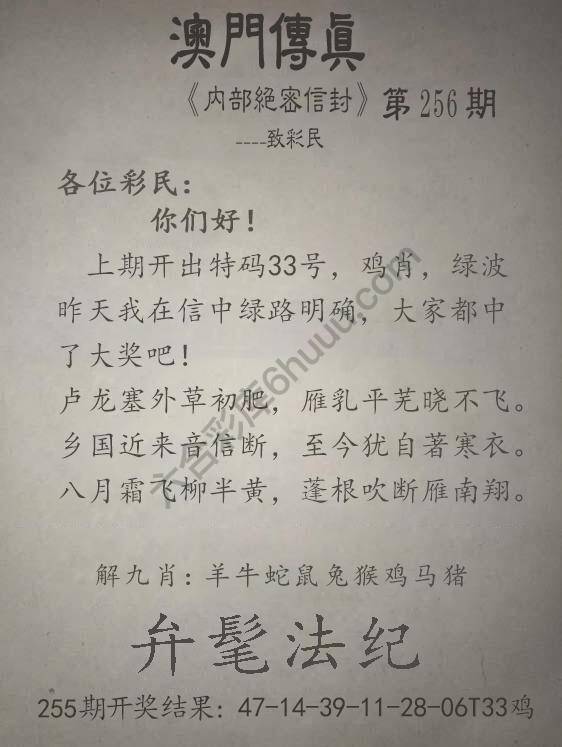 澳門傳眞
《内部絕密信封》第256期
----致彩民
各位彩民：
你们好！
上期开出特码33号，鸡肖，绿波
昨天我在信中绿路明确，大家都中
了大奖吧！
卢龙塞外草初肥，雁乳平芜晓不飞。
乡国近来音信断，至今犹自著寒衣。
八月霜飞柳半黄，蓬根吹断雁南翔。
六合彩库6huuu.com
解九肖：羊牛蛇鼠兔猴鸡马猪
弁髦法纪
255期开奖结果：47-14-39-11-28-06T33鸡